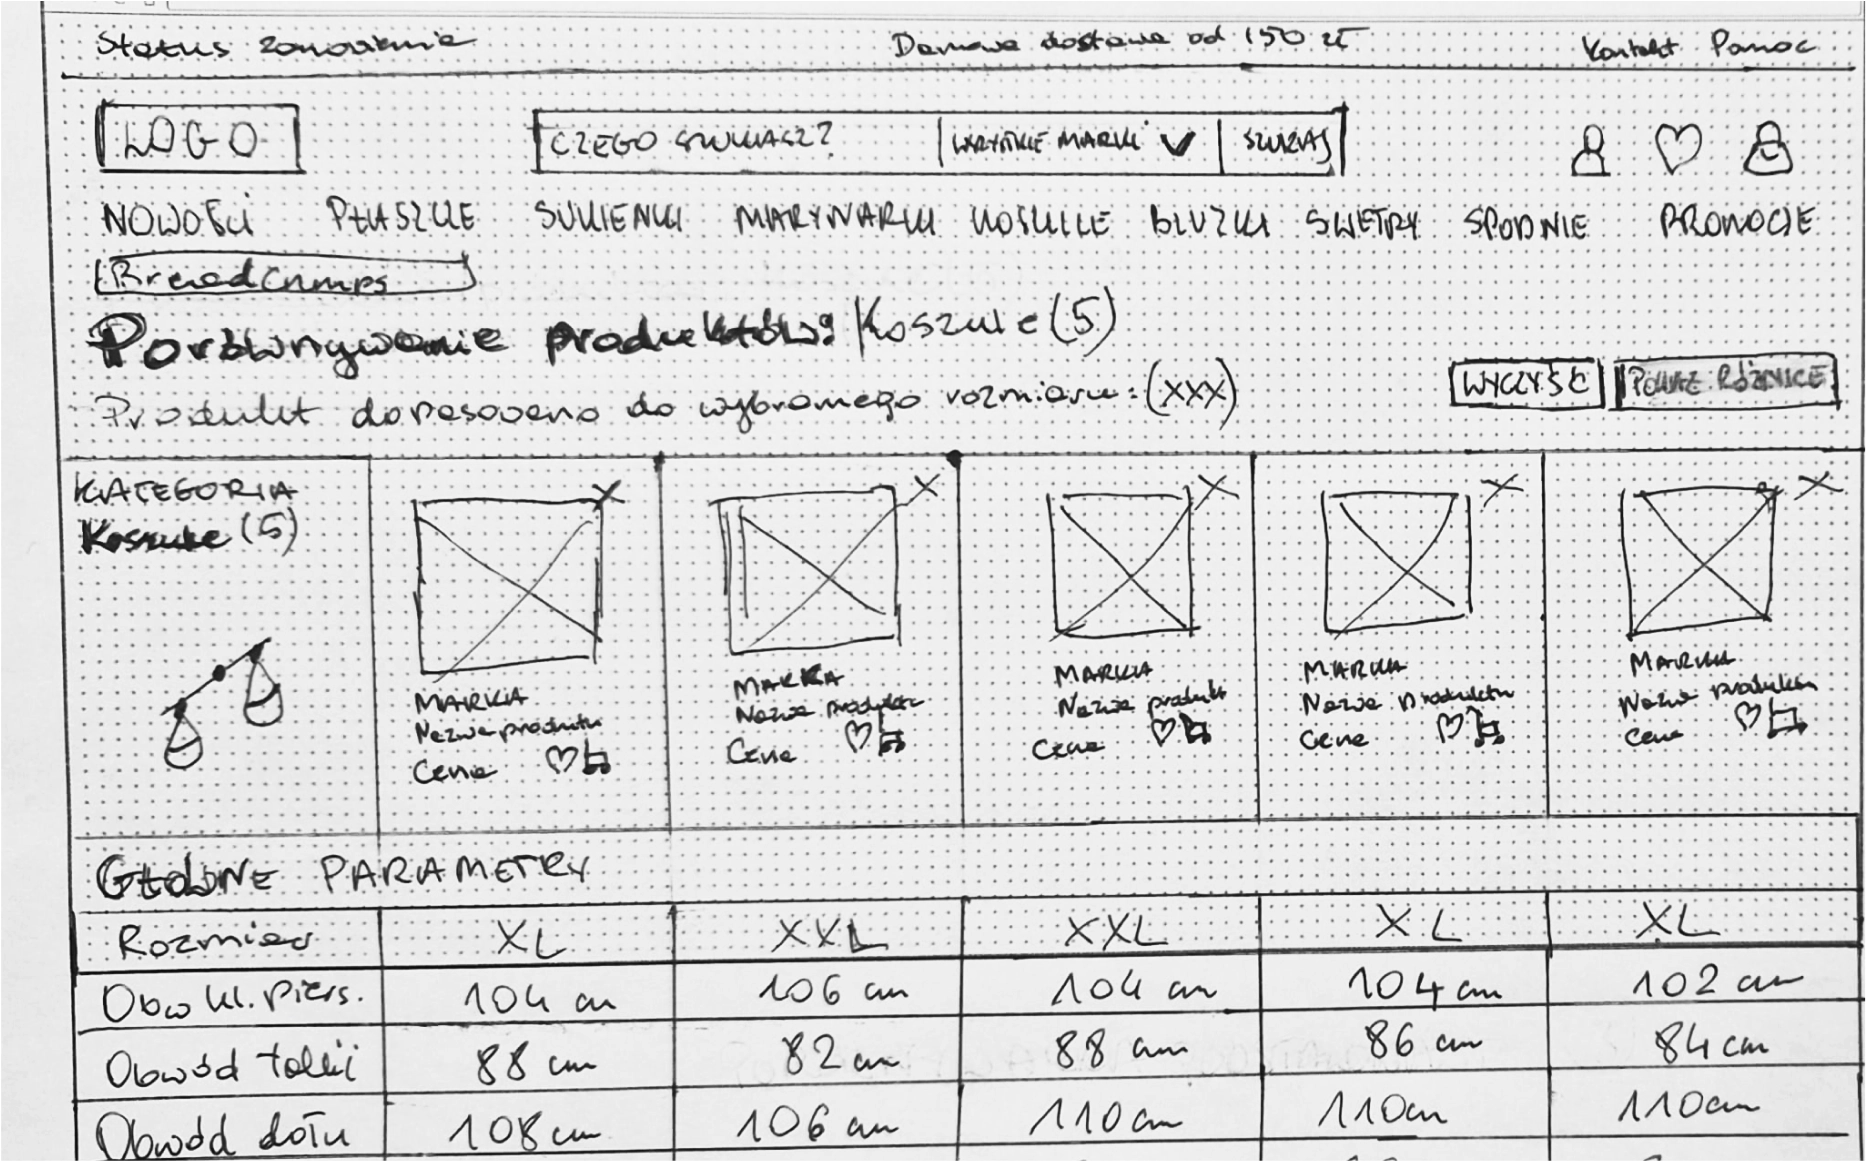 Status zamówienia Darmowa dostawa od 150 zł Kontakt Pomoc
LOGO CZEGO SZUKASZ? WSZYSTKIE MARKI SZUKAJ
NOWOŚCI PŁASZCZE SUKIENKI MARYNARKI KOSZULE BLUZKI SWETRY SPODNIE PROMOCJE
Breadcrumps
Porównywanie produktów: Koszule (5)
Produkt dopasowano do wybranego rozmiaru: (XXX) WYCZYŚĆ POKAŻ RÓŻNICE
KATEGORIA
Koszule (5)
MARKA MARKA MARKA MARKA MARKA
Nazwa produktu Nazwa produktu Nazwa produkt Nazwa produktu Nazwa produktu
Cena Cena Cena Cena Cena
GŁÓWNE PARAMETRY
Rozmiar XL XXL XXL XL XL
Obw kl. piers. 104 cm 106 cm 104 cm 104 cm 102 cm
Obwód talii 88 cm 82 cm 88 cm 86 cm 84 cm
Obwód dołu 108 cm 106 cm 110 cm 110 cm 110 cm